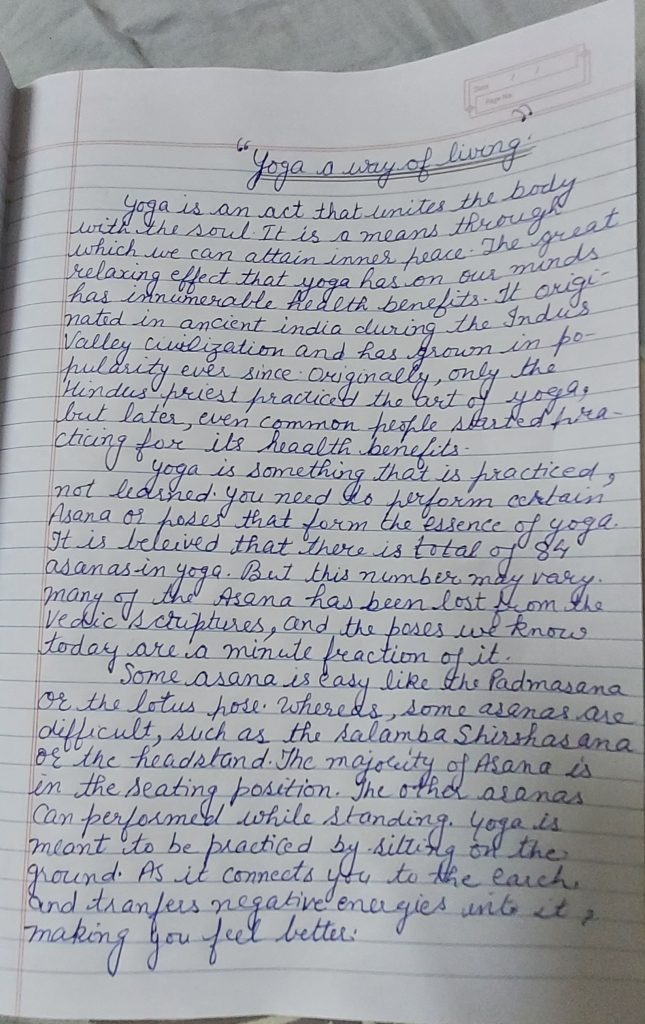 Date / /
Page No.
"Yoga a way of living."
Yoga is an act that unites the body
with the soul. It is a means through
which we can attain inner peace. The great
relaxing effect that yoga has on our minds
has innumerable health benefits. It origi-
nated in ancient india during the Indus
Valley civilization and has grown in po-
pularity ever since. Originally, only the
Hindus priest practiced the art of yoga,
but later, even common people started pra-
cticing for its heaalth benefits.
Yoga is something that is practiced,
not learned. You need to perform certain
Asana or poses that form the essence of yoga.
It is beleived that there is total of 84
asanas in yoga. But this number may vary.
many of the Asana has been lost from the
Vedic scriptures, and the poses we know
today are a minute fraction of it.
Some asana is easy like the Padmasana
or the lotus pose. Whereas, some asanas are
difficult, such as the Salamba Shirshasana
or the headstand. The majority of Asana is
in the seating position. The other asanas
can performed while standing. Yoga is
meant to be practiced by sitting on the
ground. As it connects you to the earth,
and tranfers negative energies into it,
making you feel better.